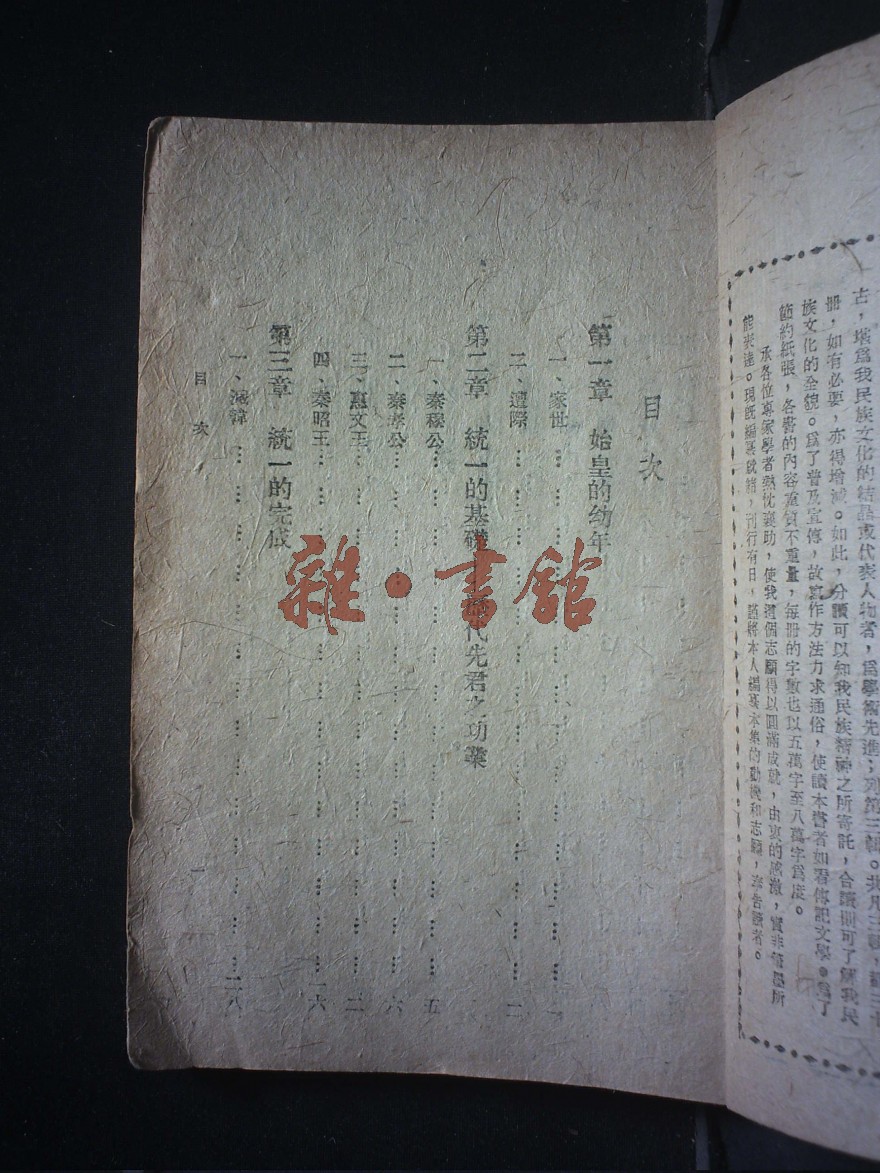 古，堪爲我民族文化的結晶或代表人物者，爲學術先進；列第三輯。共凡三輯，
冊，如有必要，亦得增減。如此，分讀可以知我民族精神之所寄託，合讀則可了解我民
族文化的全貌。爲了普及宣傳，故寫作方法力求通俗，使讀本書者如看傳記文學。爲了
節約紙張，各書的內容重質不重量，每冊的字數也以五萬字至八萬字爲度。
承各位專家學者熱忱襄助，使我這個志願得以圓滿成就，由衷的感激，實非筆墨所
能表達。現既編纂就緒，刊行有日，謹將本人編纂本集的動機和志願，奉告讀者。
目次
第一章 始皇的幼年
一、家世 一
二、遭際 二
第二章 統一的基礎 歷代先君之功業
一、秦穆公 五
二、秦孝公 六
三、惠文王 二
四、秦昭王 一六
第三章 統一的完成
一、滅韓 二八
目次 一
雜·書館